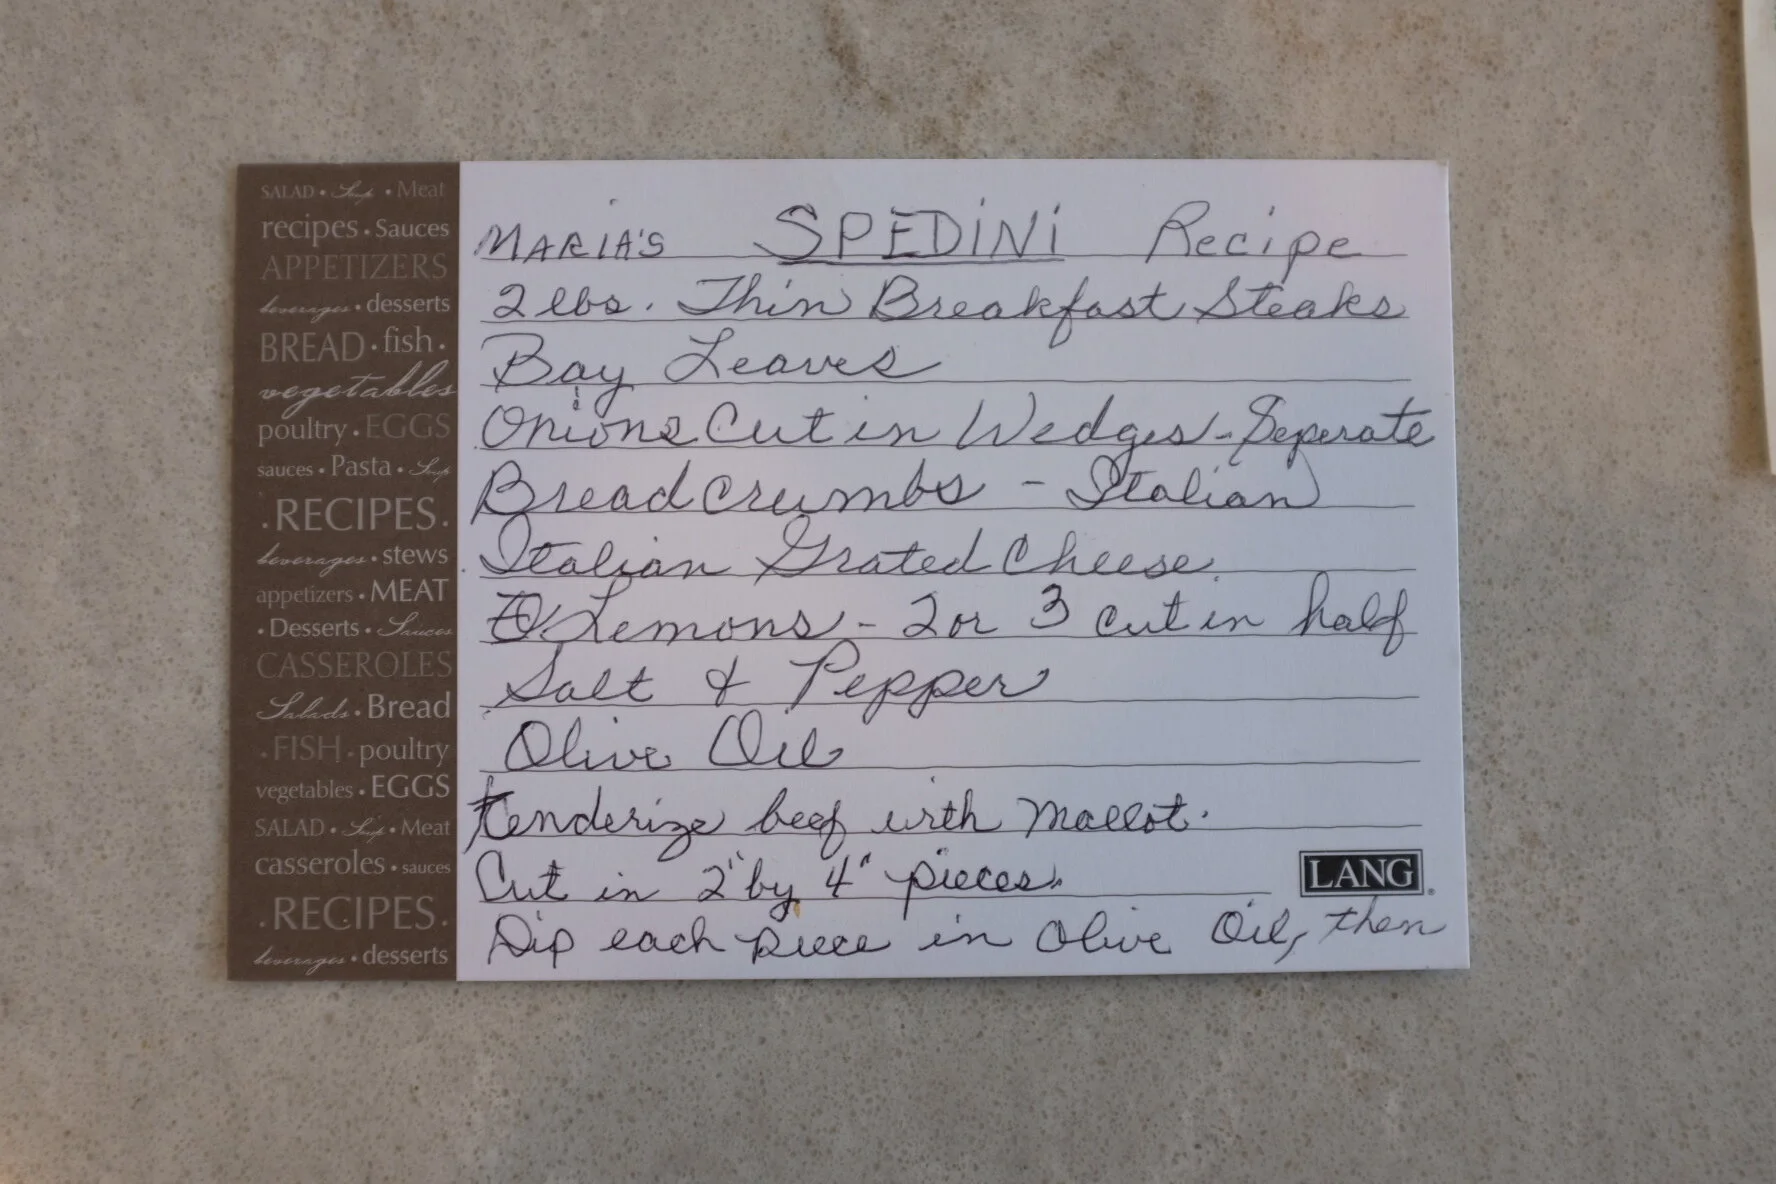 SALAD • Soup • Meat
recipes • Sauces
APPETIZERS
beverages • desserts
BREAD • fish •
vegetables
poultry • EGGS
sauces • Pasta • Soup
• RECIPES •
beverages • stews
appetizers • MEAT
• Desserts • Sauces
CASSEROLES
Salads • Bread
• FISH • poultry
vegetables • EGGS
SALAD • Soup • Meat
casseroles • sauces
• RECIPES •
beverages • desserts
MARIA'S SPEDINI Recipe
2 lbs. Thin Breakfast Steaks
Bay Leaves
Onions Cut in Wedges - Seperate
Bread crumbs - Italian
Italian Grated Cheese
Lemons - 2 or 3 cut in half
Salt & Pepper
Olive Oil
tenderize beef with Mallot.
Cut in 2" by 4" pieces.
LANG
Dip each piece in Olive Oil, then